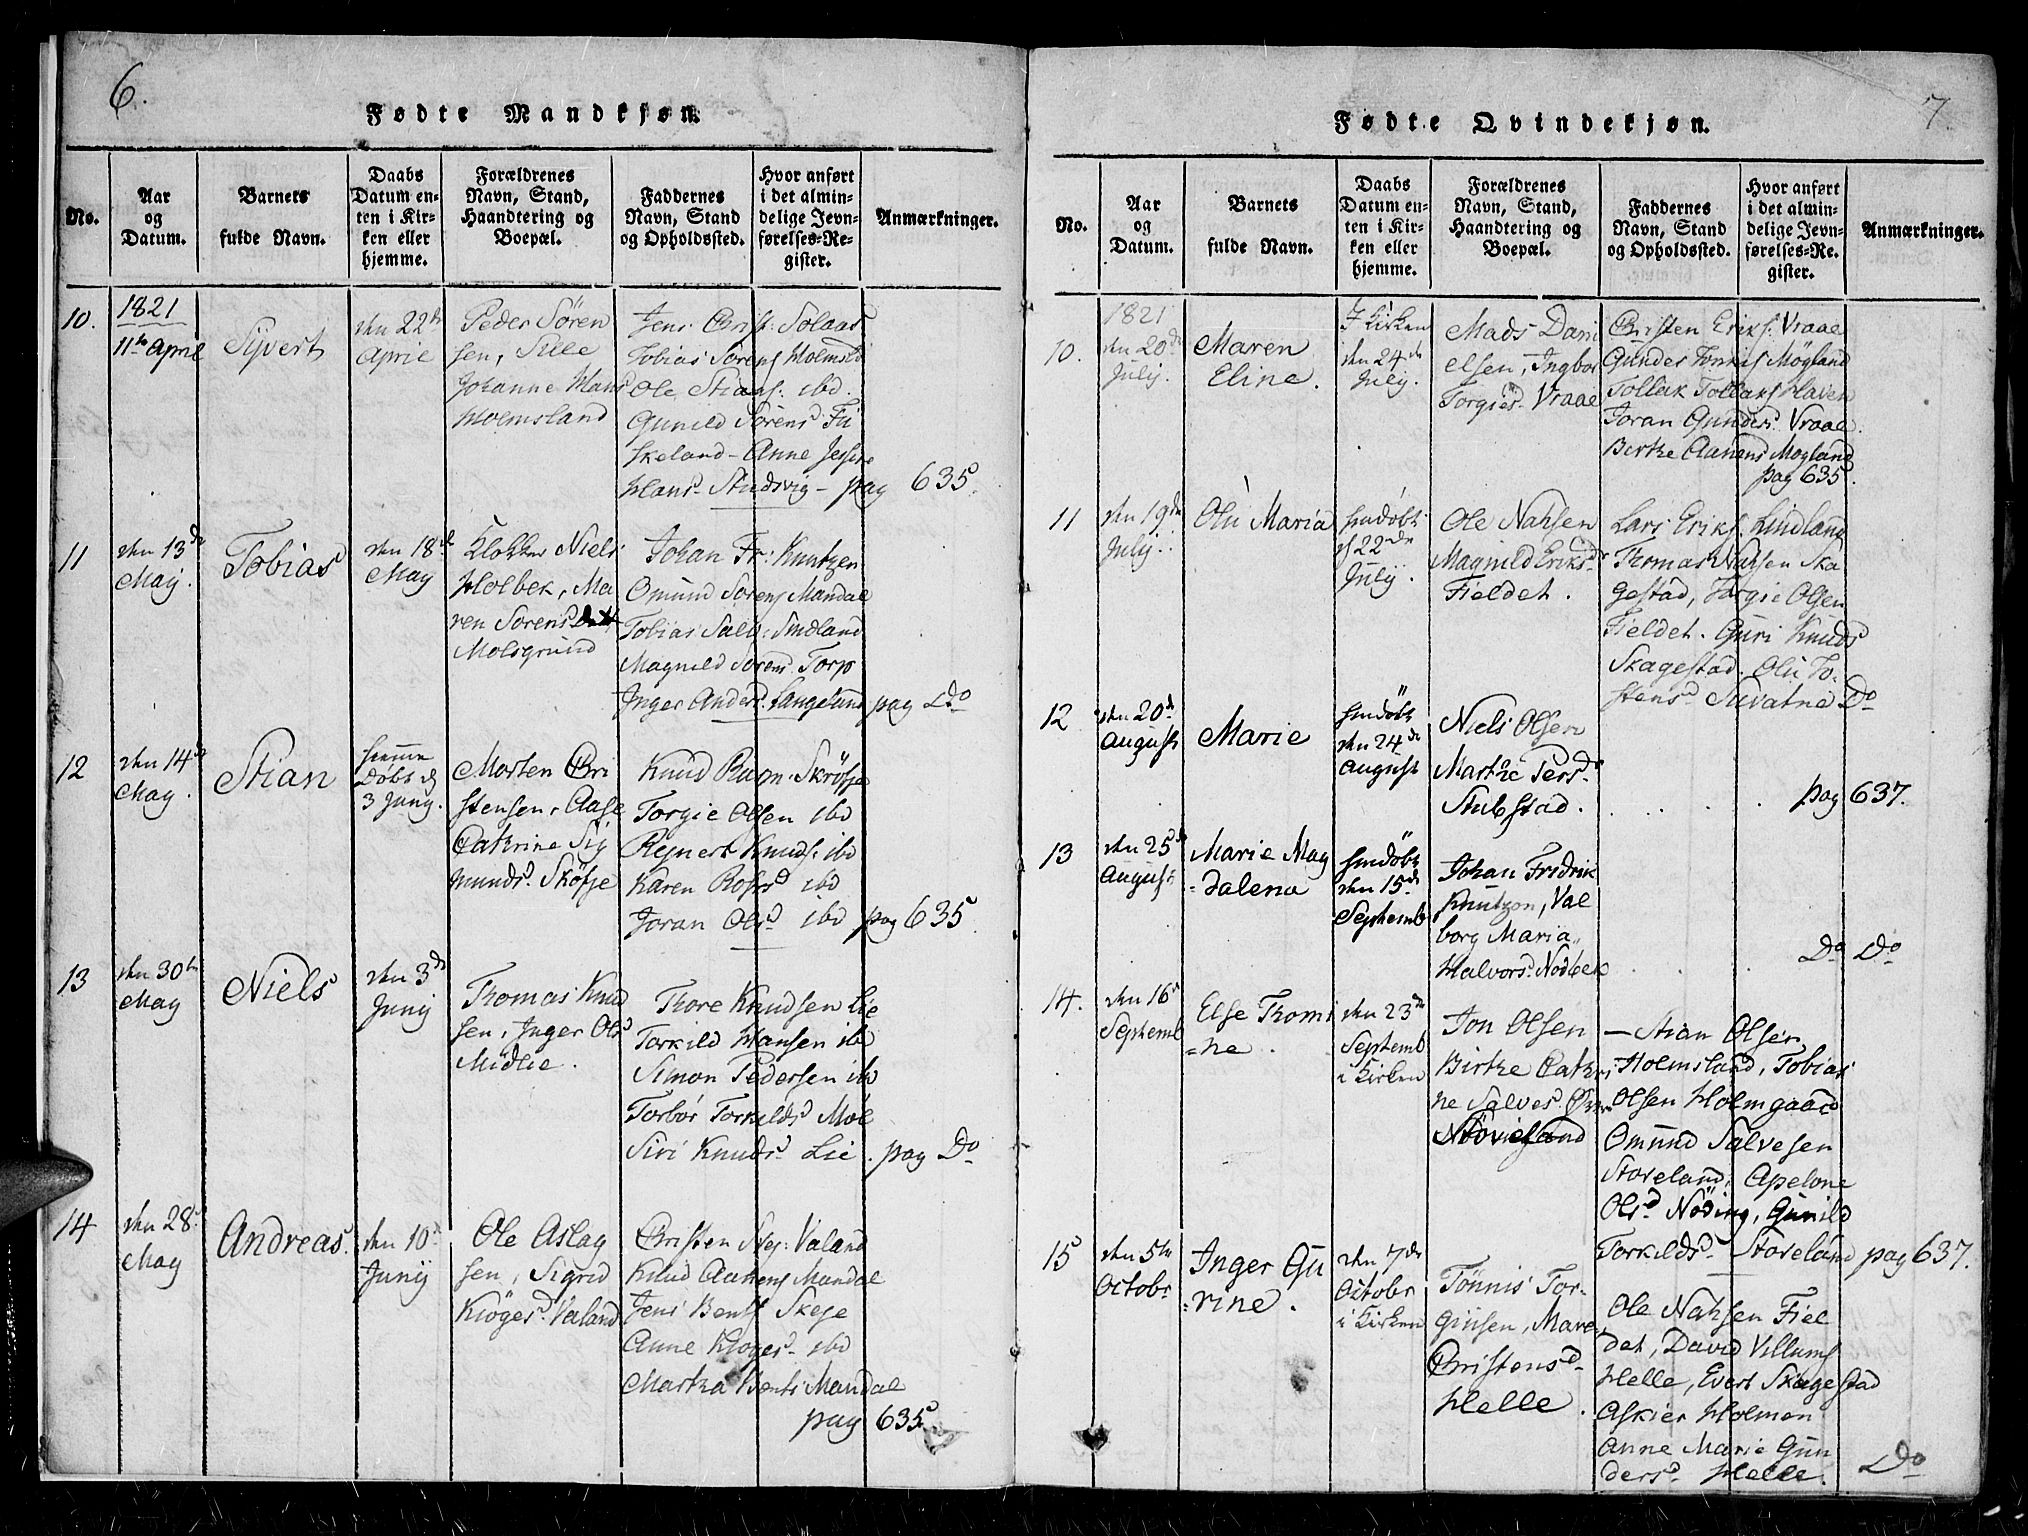 6.
Fødte Mandkjøn.
No.
Aar
og
Datum.
Barnets
fulde Navn.
Daabs
Datum en-
ten i Kir-
ken eller
hjemme.
Forældrenes
Navn, Stand,
Haandtering og
Boepæl.
Faddernes
Navn, Stand
og Opholdssted.
Hvor anført
i det almin-
delige Jevn-
førelses-Re-
gister.
Anmærkninger.
10.
1821
11te April
Syvert
den 22de
April
Peder Sören
sen, Sille
Johanne Hans
Holmsland
Jens Christ: Solaas
Tobias Sörens Holmsld
Ole Stians: ibd.
Gunild Sörensd Fi
skeland - Anne Jessine
Hansd Studsvig - pag 635.
11
den 13de
May.
Tobias
den 18de
May
Klokker Niels
Holbek, Ma
ren Sorensd
Molsgrund
Johan Fr: Kuntzen
Omund Sorens Mandal
Tobias Salv: Smdland
Magnild Sorens Torp
Inger Andersd Langelund pag Do
12
den 14de
May.
Stian
hiemme
Döbt d
3 Juny.
Morten Chri
stensen, Aase
Cathrine Sig
mundsd Sköfse
Knud Ragn: Skröfse
Torgie Olsen ibd
Reinert Knuds: ibd
Karen Rofsd ibd
Joran Olsd ibd pag 635.
13
den 30te
May
Niels
den 3de
Junij
Thomas Knud
sen, Inger Olsd
Midlie.
Thore Knudsen Lie
Torkild Hansen ibd
Simon Pedersen ibd
Torbör Torkildsd Möl
Siri Knudsd Lie. pag Do
14
den 28de
May
Andreas.
den 10de
Junij
Ole Aslag
sen, Sigrid
Kiögesd Valand
Christen Step: Valand
Knud Aanens Mandal
Jens Bents Skeie
Anne Kiogesd ibd
Martha Bents Mandal
pag 635
7.
Fødte Qvindekjøn.
No.
Aar
og
Datum.
Barnets
fulde Navn.
Daabs
Datum en-
ten i Kir-
ken eller
hjemme.
Forældrenes
Navn, Stand,
Haandtering og
Boepæl.
Faddernes
Navn, Stand
og Opholdssted.
Hvor anført
i det almin-
delige Jevn-
førelses-Re-
gister.
Anmærkninger.
10.
1821
den 20de
July.
Maren
Eline.
I Kirken
den 24de
July.
Mads Dani
elsen, Ingbor
Torgiesd Vraae
Christen Eriks: Vraae
Gunder Tonnis Mögland
Tollak Tollaks Haven
Joran Gundersd Vraae.
Birthe Aanens Mogland
pag 635.
11
den 19de
July.
Olii Maria
hmdöbt
d 22de
July.
Ole Nahsen
Magnild Eriksd
Fieldet.
Lars Eriks. Lindland
Thomas Nahsen Ska
gestad, Torgie Olsen
Fieldet. Guri Knuds
Skagestad. Oli To-
stensd Suvatne Do
12
den 20de
August
Marie
hmdöbt
den 24de
August
Niels Olsen
Marthe Persd
Stubstad.
pag 637.
13
den 25de
August
Marie Mag
=dalena
hmdöbt
den 15de
Septemb
Johan Fridrik
Knutzon, Val
borg Maria
Halvorsd Nodbek
Do Do
14.
den 16de
Septemb
Else Thomi
=ne.
den 23de
Septemb
i Kirken
Jon Olsen
Birthe Cathri
ne Salvesd
Stian Olsen
Holmsland, Tobias
Olsen Holmgaard
Omund Salvesen
Storeland, Apelone
Olsd Nöding, Gunild
Torkildsd Storeland pag 637.
15
den 5te
Octobr
Inger Gu
=rine.
den 7de
Octobr
i Kirken
Tönnis Tor-
giusen, Mare
Christensd
Helle.
Ole Nahsen Fiel
det, David Villums
Helle, Evert Skagestad
Askier Holmen
Anne Marie Gun
dersd Helle. Do